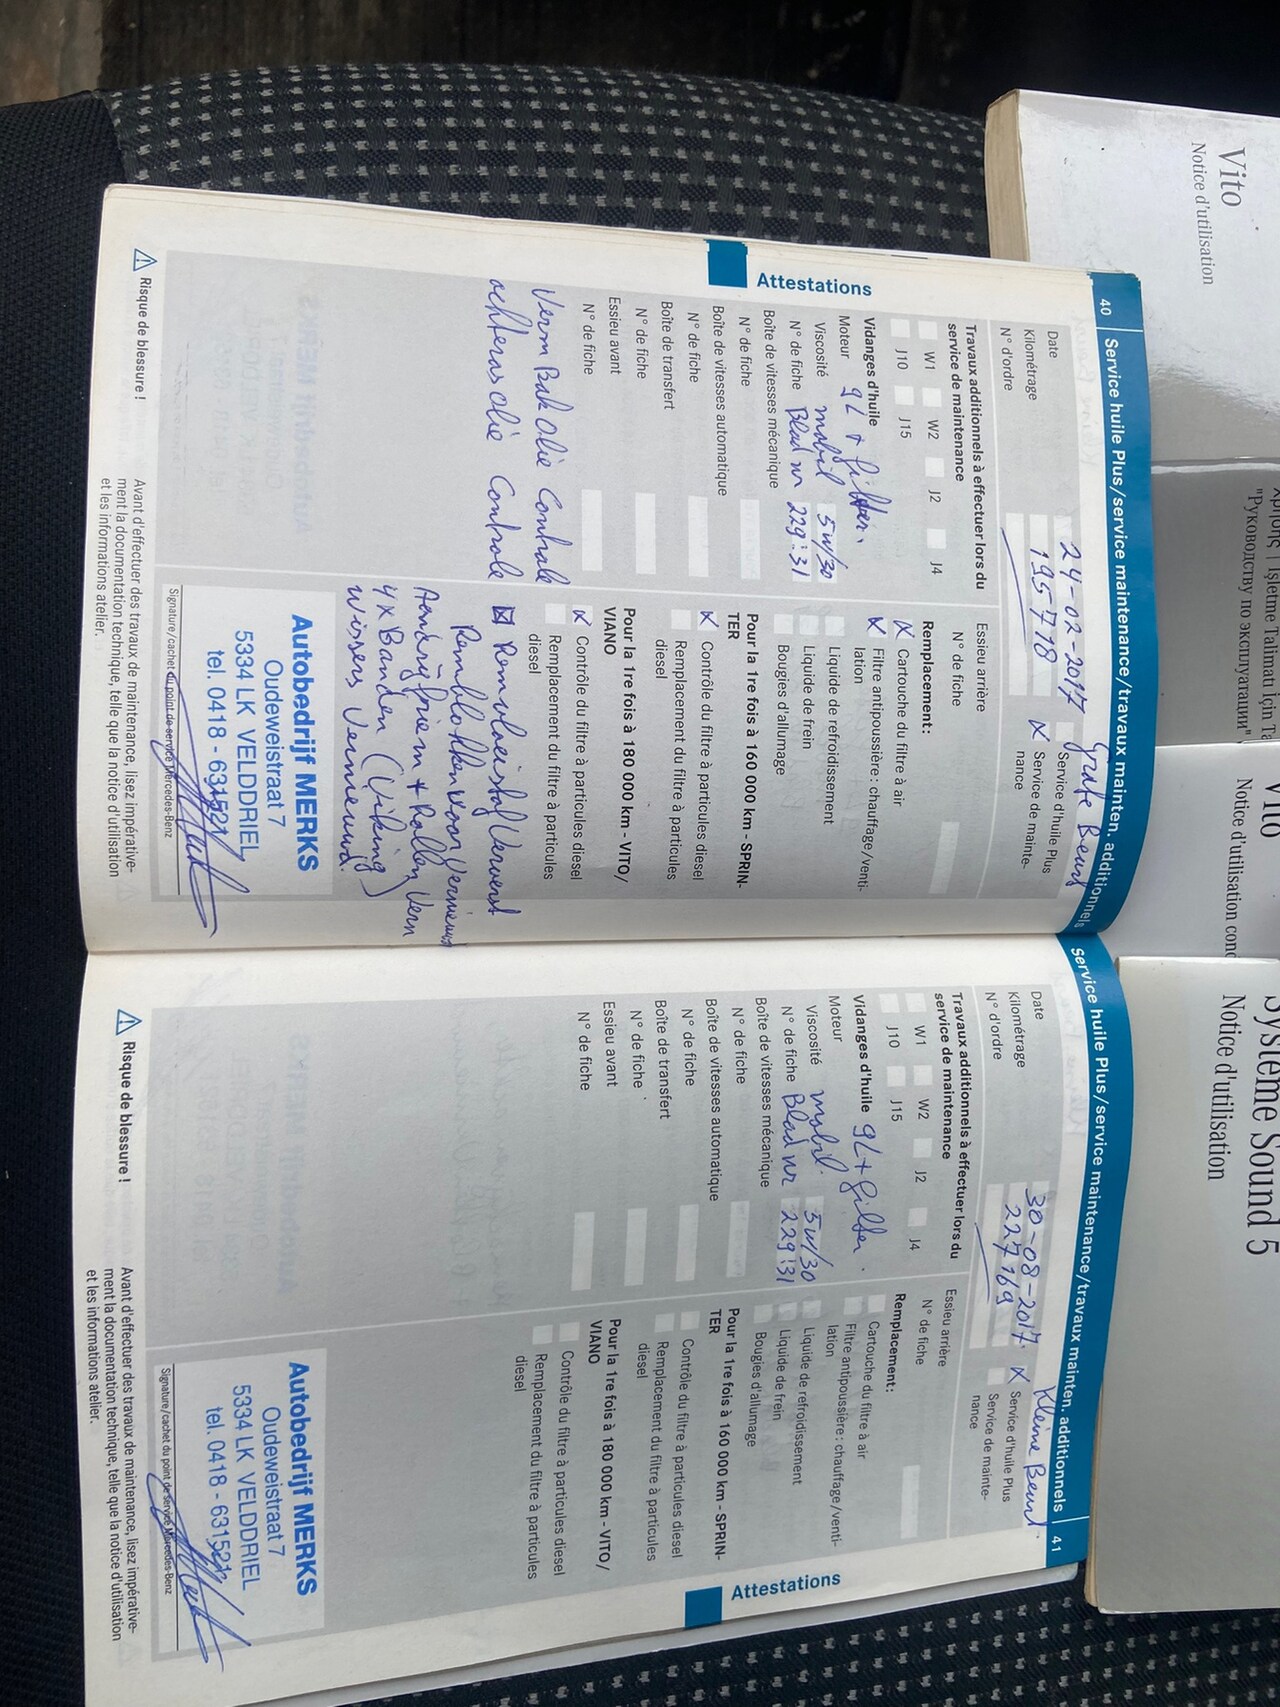 40 Service huile Plus/service maintenance/travaux mainten. additionnels
Grote Beurt
Date 24-02-2017
Kilométrage 195718
N° d'ordre
Service d'huile Plus
X Service de mainte-
nance
Travaux additionnels à effectuer lors du
service de maintenance
W1 W2 J2 J4
J10 J15
Vidanges d'huile
Moteur 9L + filter.
Viscosité mobil 5w/30
N° de fiche Blad nr 229:31
Boîte de vitesses mécanique
N° de fiche
Boîte de vitesses automatique
N° de fiche
Boîte de transfert
N° de fiche
Essieu avant
N° de fiche
Verm Bak olie Controle
achteras olie Controle
Essieu arrière
N° de fiche
Remplacement:
X Cartouche du filtre à air
X Filtre antipoussière: chauffage/venti-
lation
Liquide de refroidissement
Liquide de frein
Bougies d'allumage
Pour la 1re fois à 160 000 km - SPRIN-
TER
X Contrôle du filtre à particules diesel
Remplacement du filtre à particules
diesel
Pour la 1re fois à 180 000 km - VITO/
VIANO
X Contrôle du filtre à particules diesel
Remplacement du filtre à particules
diesel
X Remvloeistof Ververst
Remblokken voor Vernieuwd
Aandrijfriem + Rollen Vern
4x Banden (Viking)
wissers Vernieuwd.
Autobedrijf MERKS
Oudeweistraat 7
5334 LK VELDDRIEL
tel. 0418 - 631521
Signature/cachet du point de service Mercedes-Benz
Risque de blessure!
Avant d'effectuer des travaux de maintenance, lisez impérative-
ment la documentation technique, telle que la notice d'utilisation
et les informations atelier.
Attestations
Service huile Plus/service maintenance/travaux mainten. additionnels 41
Kleine Beurt
Date 30-08-2017.
Kilométrage 227169
N° d'ordre
X Service d'huile Plus
Service de mainte-
nance
Travaux additionnels à effectuer lors du
service de maintenance
W1 W2 J2 J4
J10 J15
Vidanges d'huile 9L + filter.
Moteur
Viscosité mobil. 5w/30
N° de fiche Blad nr 229:31
Boîte de vitesses mécanique
N° de fiche
Boîte de vitesses automatique
N° de fiche
Boîte de transfert
N° de fiche
Essieu avant
N° de fiche
Essieu arrière
N° de fiche
Remplacement:
Cartouche du filtre à air
Filtre antipoussière: chauffage/venti-
lation
Liquide de refroidissement
Liquide de frein
Bougies d'allumage
Pour la 1re fois à 160 000 km - SPRIN-
TER
Contrôle du filtre à particules diesel
Remplacement du filtre à particules
diesel
Pour la 1re fois à 180 000 km - VITO/
VIANO
Contrôle du filtre à particules diesel
Remplacement du filtre à particules
diesel
Autobedrijf MERKS
Oudeweistraat 7
5334 LK VELDDRIEL
tel. 0418 - 631521
Signature/cachet du point de service Mercedes-Benz
Risque de blessure!
Avant d'effectuer des travaux de maintenance, lisez impérative-
ment la documentation technique, telle que la notice d'utilisation
et les informations atelier.
Attestations
Vito
Notice d'utilisation
İşletme Talimatı İçin
"Руководству по эксплуатации"
Vito
Notice d'utilisation
Système Sound 5
Notice d'utilisation